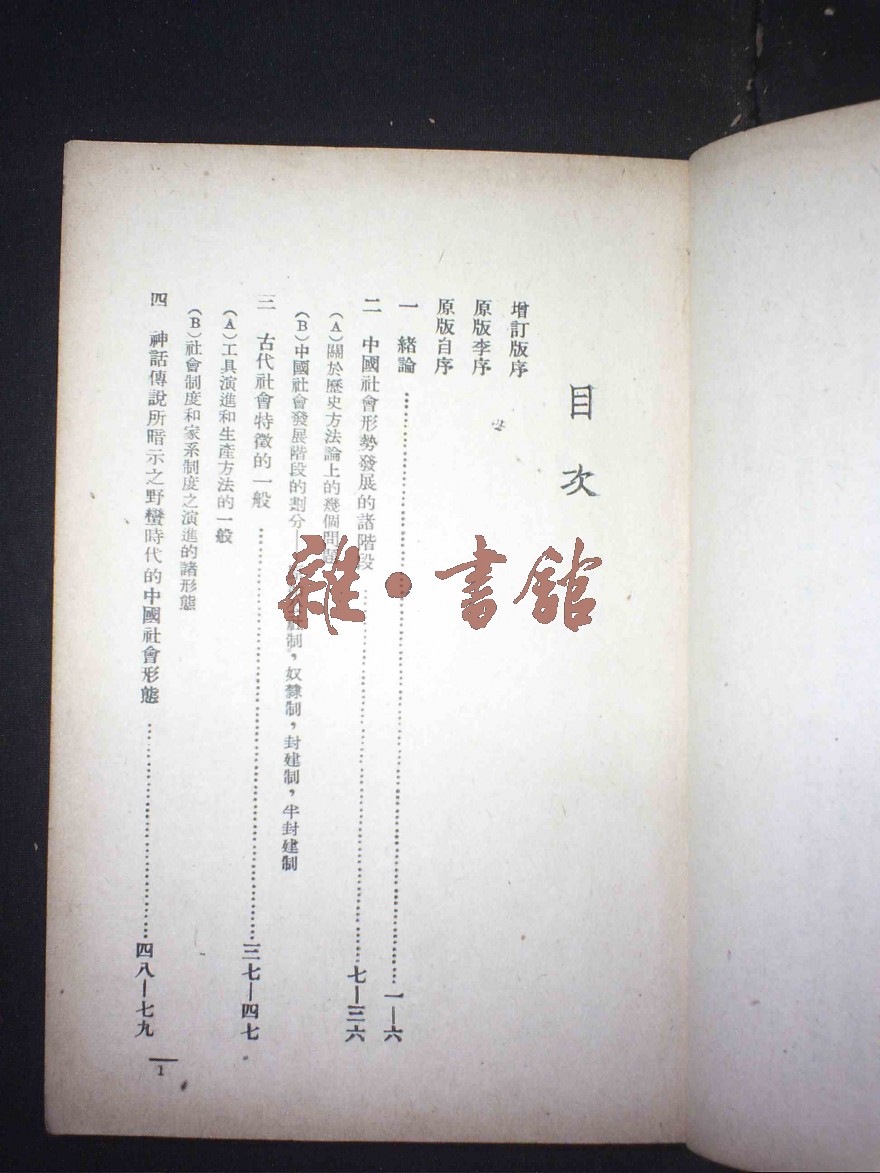 目次
增訂版序
原版李序
原版自序
一 緒論…………一—六
二 中國社會形勢發展的諸階段…………七—三六
(A)關於歷史方法論上的幾個問
(B)中國社會發展階段的劃分—制，奴隸制，封建制，半封建制
三 古代社會特徵的一般…………三七—四七
(A)工具演進和生產方法的一般
(B)社會制度和家系制度之演進的諸形態
四 神話傳說所暗示之野蠻時代的中國社會形態…………四八—七九
1
雜·書館